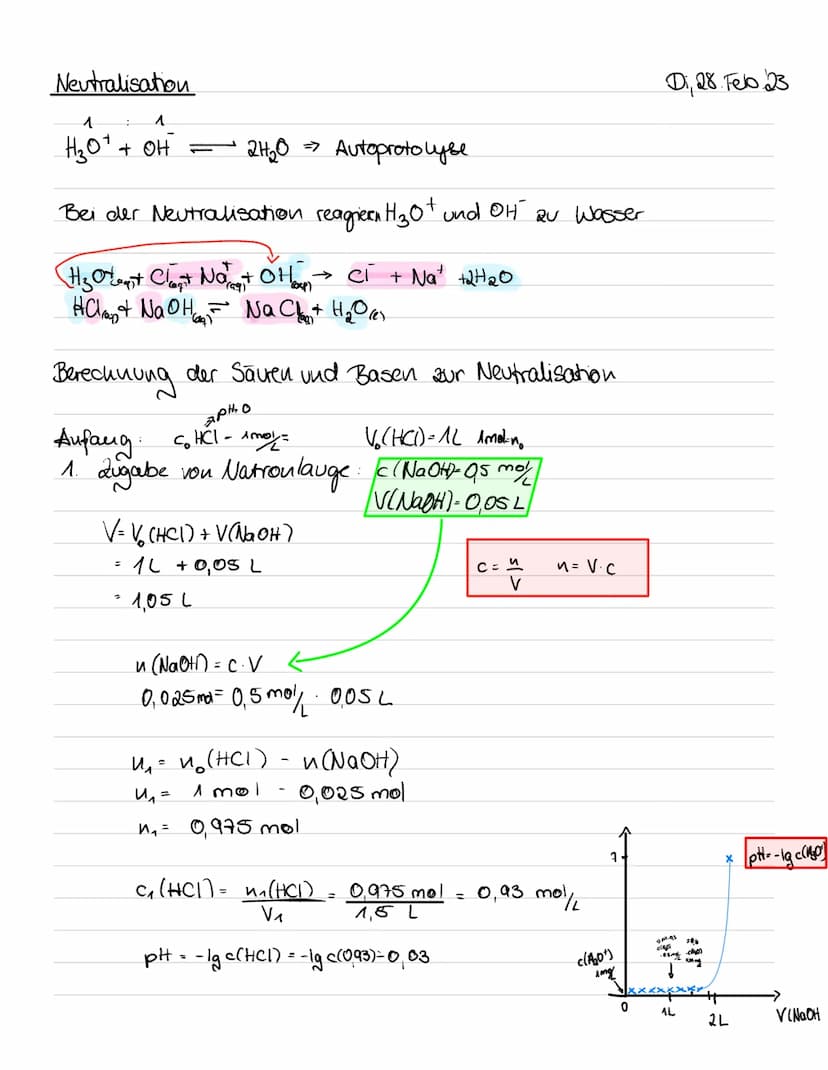 Neutralisation
Di, 28. Feb '23
1 : 1
H₃O⁺ + OH⁻ ⇌ 2H₂O ⇒ Autoprotolyse
Bei der Neutralisation reagiern H₃O⁺ und OH⁻ zu Wasser
H₃O⁺(aq) + Cl⁻(aq) + Na⁺(aq) + OH⁻(aq) → Cl⁻ + Na⁺ + 2H₂O
HCl(aq) + NaOH(aq) ⇌ NaCl(aq) + H₂O(l)
Berechnung der Säuren und Basen zur Neutralisation
↗pH=0
Anfang: c₀ HCl - 1mol/L = V₀(HCl) = 1L 1mol=n₀
1. Zugabe von Natronlauge: c(NaOH)= 0,5 mol/L
V(NaOH)= 0,05 L
V = V₀(HCl) + V(NaOH)
= 1L + 0,05 L
= 1,05 L
c = n/V n = V·c
n(NaOH) = c·V
0,025mol = 0,5 mol/L · 0,05 L
n₁ = n₀(HCl) - n(NaOH)
n₁ = 1 mol - 0,025 mol
n₁ = 0,975 mol
c₁(HCl) = n₁(HCl)/V₁ = 0,975 mol/1,5 L = 0,93 mol/L
pH = -lg c(HCl) = -lg c(0,93) = 0,03
7
pH = -lg c(H₃O⁺)
c(H₃O⁺)
1mol/L
0 1L 2L V(NaOH